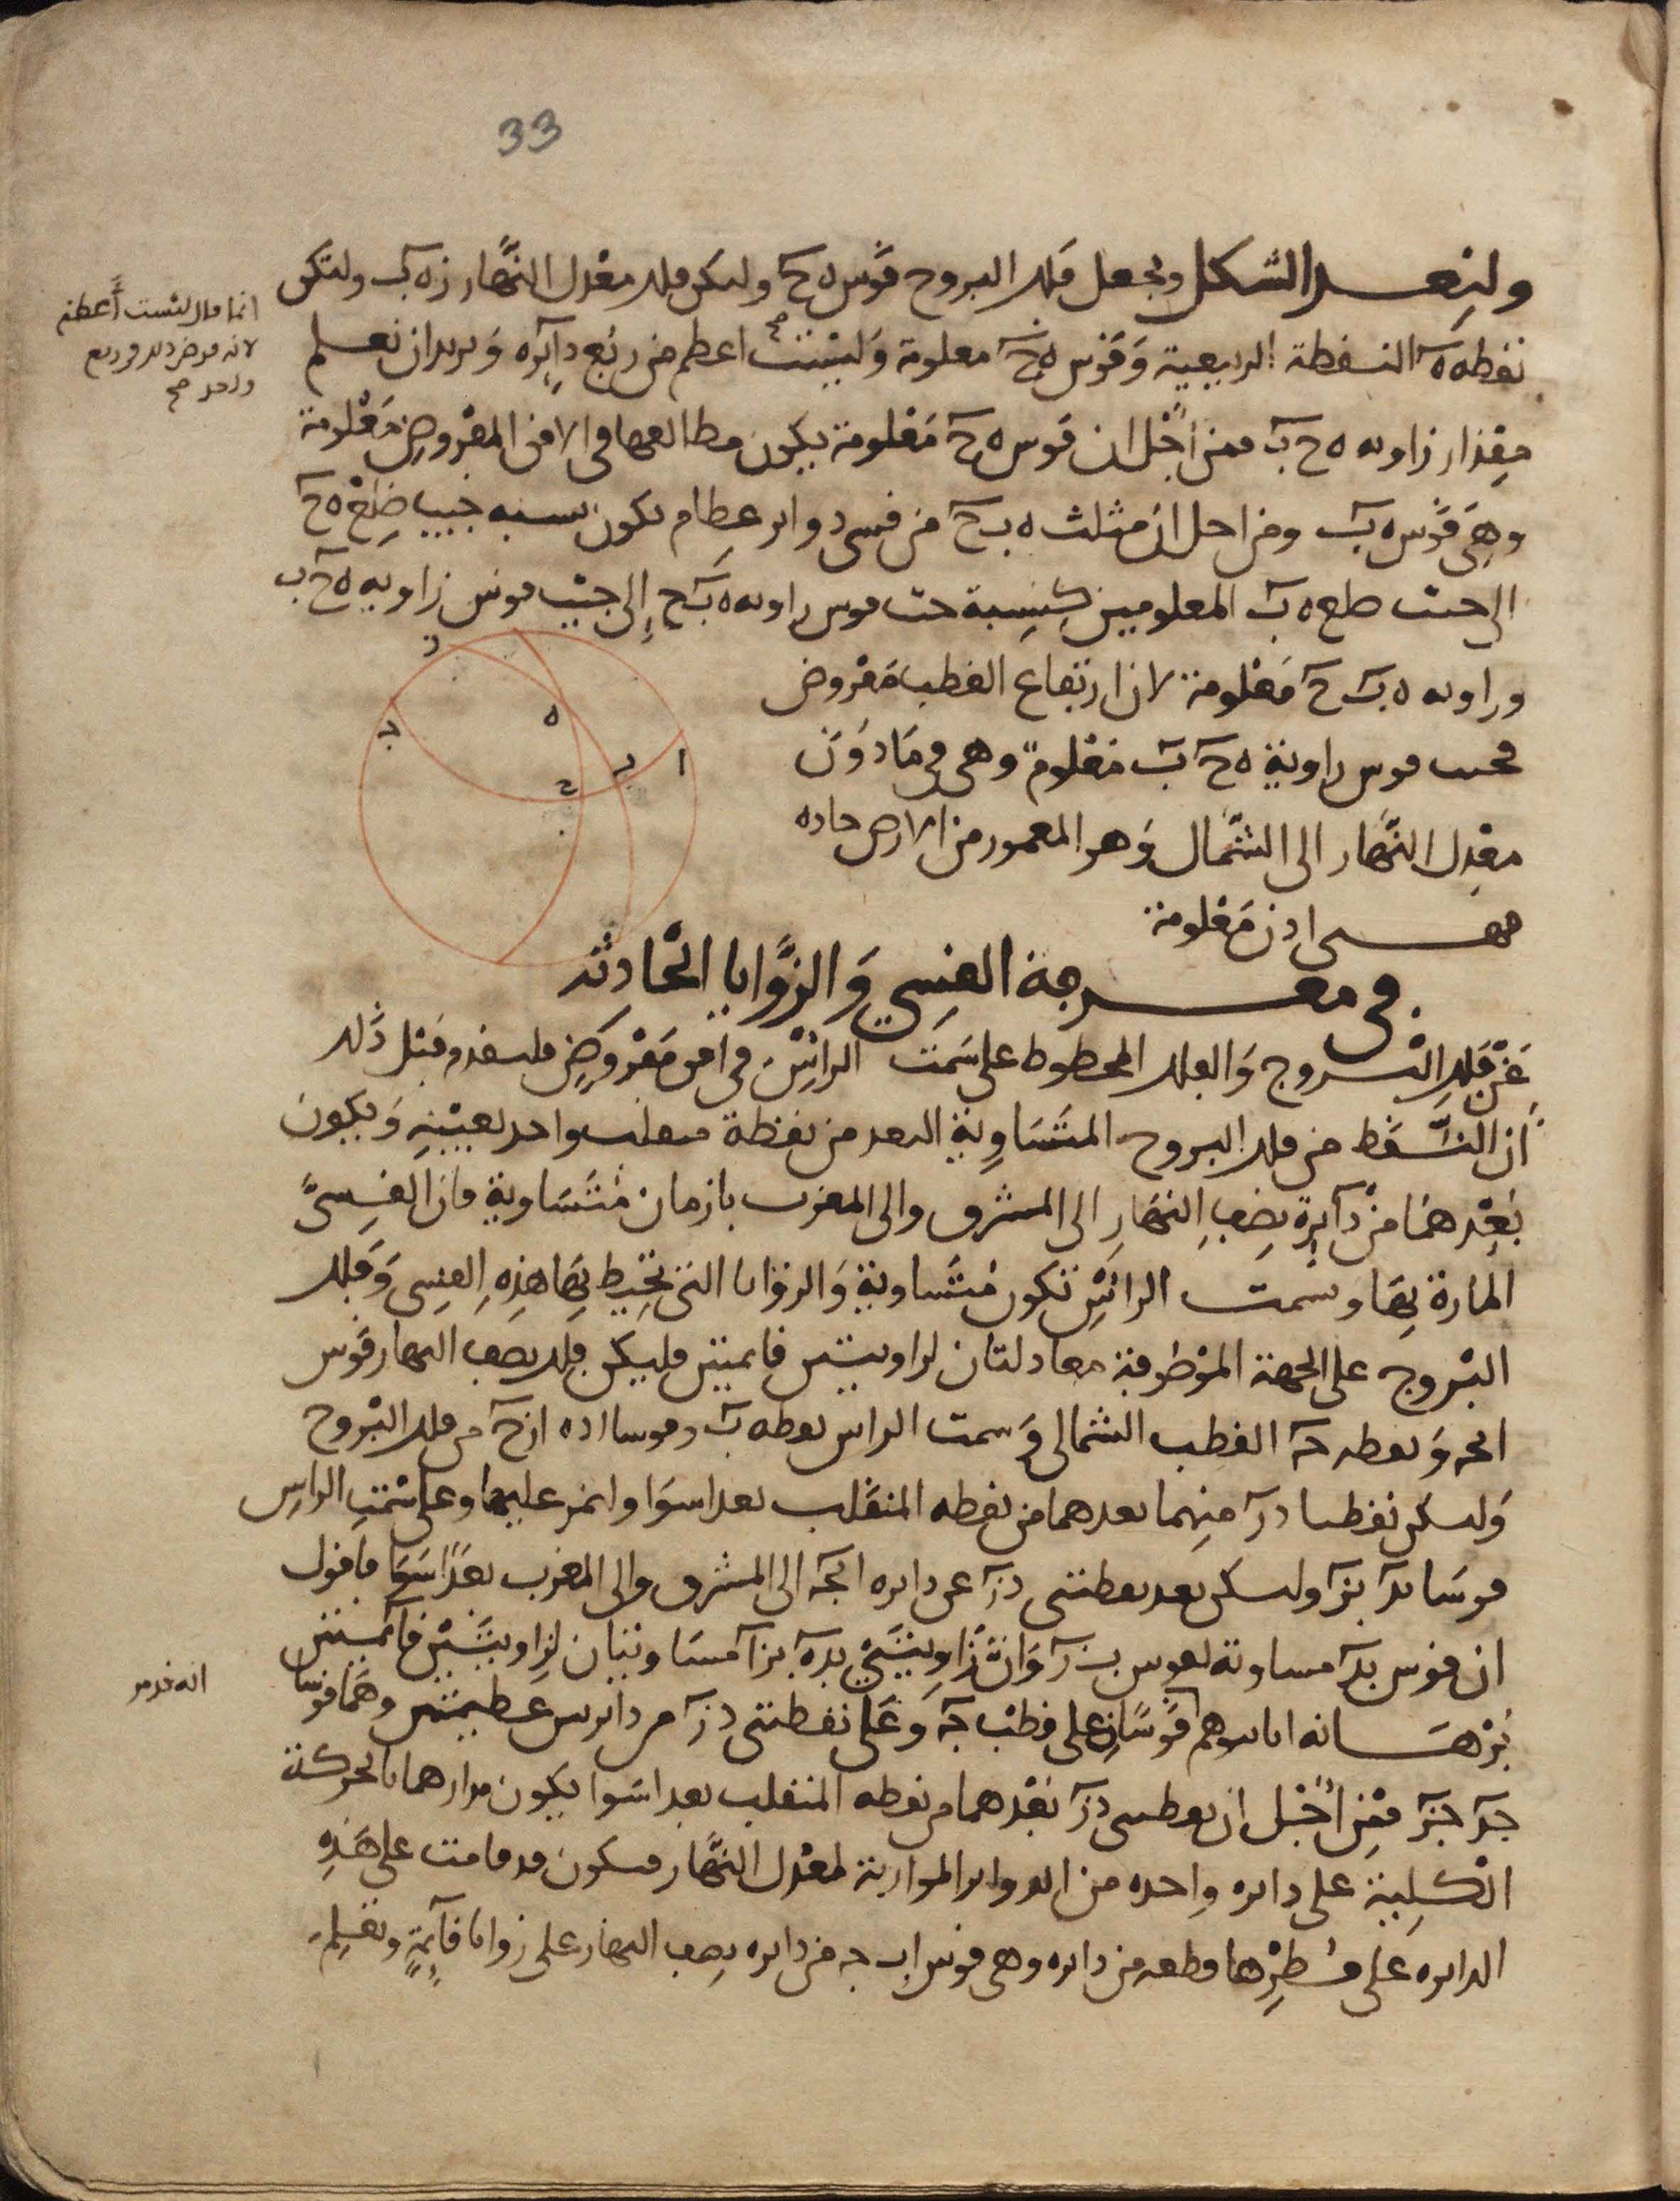 33
ولنعد الشكل ونجعل فلك البروج قوس ه ح وليكن فلك معدل النهار ز ه ب ولتكن
نقطة ه النقطة الربيعية وقوس ه ح معلومة وليست اعظم من ربع دآئره ونريد ان نعلم
مقدار زاويه ه ح ب فمن أجل ان قوس ه ح معلومة يكون مطالعها في الافق المفروض معلومة
وهي قوس ه ب ومن اجل ان مثلث ه ب ح من قسي دواير عظام يكون نسبه جيب ضلع ه ح
الى جيب ضلع ه ب المعلومين كنسبة جيب قوس زاويه ه ب ح إلى جيب قوس زاويه ه ح ب
وزاويه ه ب ح معلومة لان ارتفاع القطب مفروض
فجيب قوس زاوية ه ح ب معلوم وهي في ما دون
معدل النهار الى الشمال وهو المعمور من الارض حاده
فهي اذن معلومة
في معرفة القسي والزوايا الحادثه
عن فلك البروج والفلك المخطوط على سمت الرأس في افق مفروض فلنقدم قبل ذلك
أن النقط من فلك البروج المتساوية البعد من نقطة منقلب واحد بعينه ويكون
بعدهما من دآيرة نصف النهار الى المشرق والى المغرب بازمان متساوية فان القسي
المارة بها وبسمت الرأس تكون متساوية والزوايا التي تحيط بها هذه القسي وفلك
البروج على الجهة الموصوفة معادلتان لزاويتين قايمتين فليكن فلك نصف النهار قوس
ابجه ونقطه جه القطب الشمالي وسمت الراس نقطه ب وقوسا اده ازح من فلك البروج
وليكن نقطتا د ز منهما بعدهما من نقطه المنقلب بعدا سوا ولنمر عليهما وعلى سمت الراس
قوسا بد بز وليكن بعد نقطتي د ز عن دايره ابجه الى المشرق والى المغرب بعدا سوا فاقول
ان قوس بد مساوية لقوس بز وان زاويتي بده بزا مساويتان لزاويتين قآئمتين
برهانه انا نتوهم قوسان على قطب جه وعلى نقطتي د ز من دائرتين عظيمتين وهما قوسا
جد جز فمن أجل ان نقطتي د ز بعدهما من نقطه المنقلب بعدا سوا يكون مدارهما بالحركة
الكلية على دايره واحده من الدواير الموازية لمعدل النهار فيكون قد قامت على هذه
الدايره على قطرها قطعه من دايره وهي قوس اب جه من دايره نصف النهار على زوايا قآيمة وتقسم
انما قال ليست أعظم
لانه فرض ذلك في ربع
واحد صح
صح
ز
د
ه
ب
ا
ح